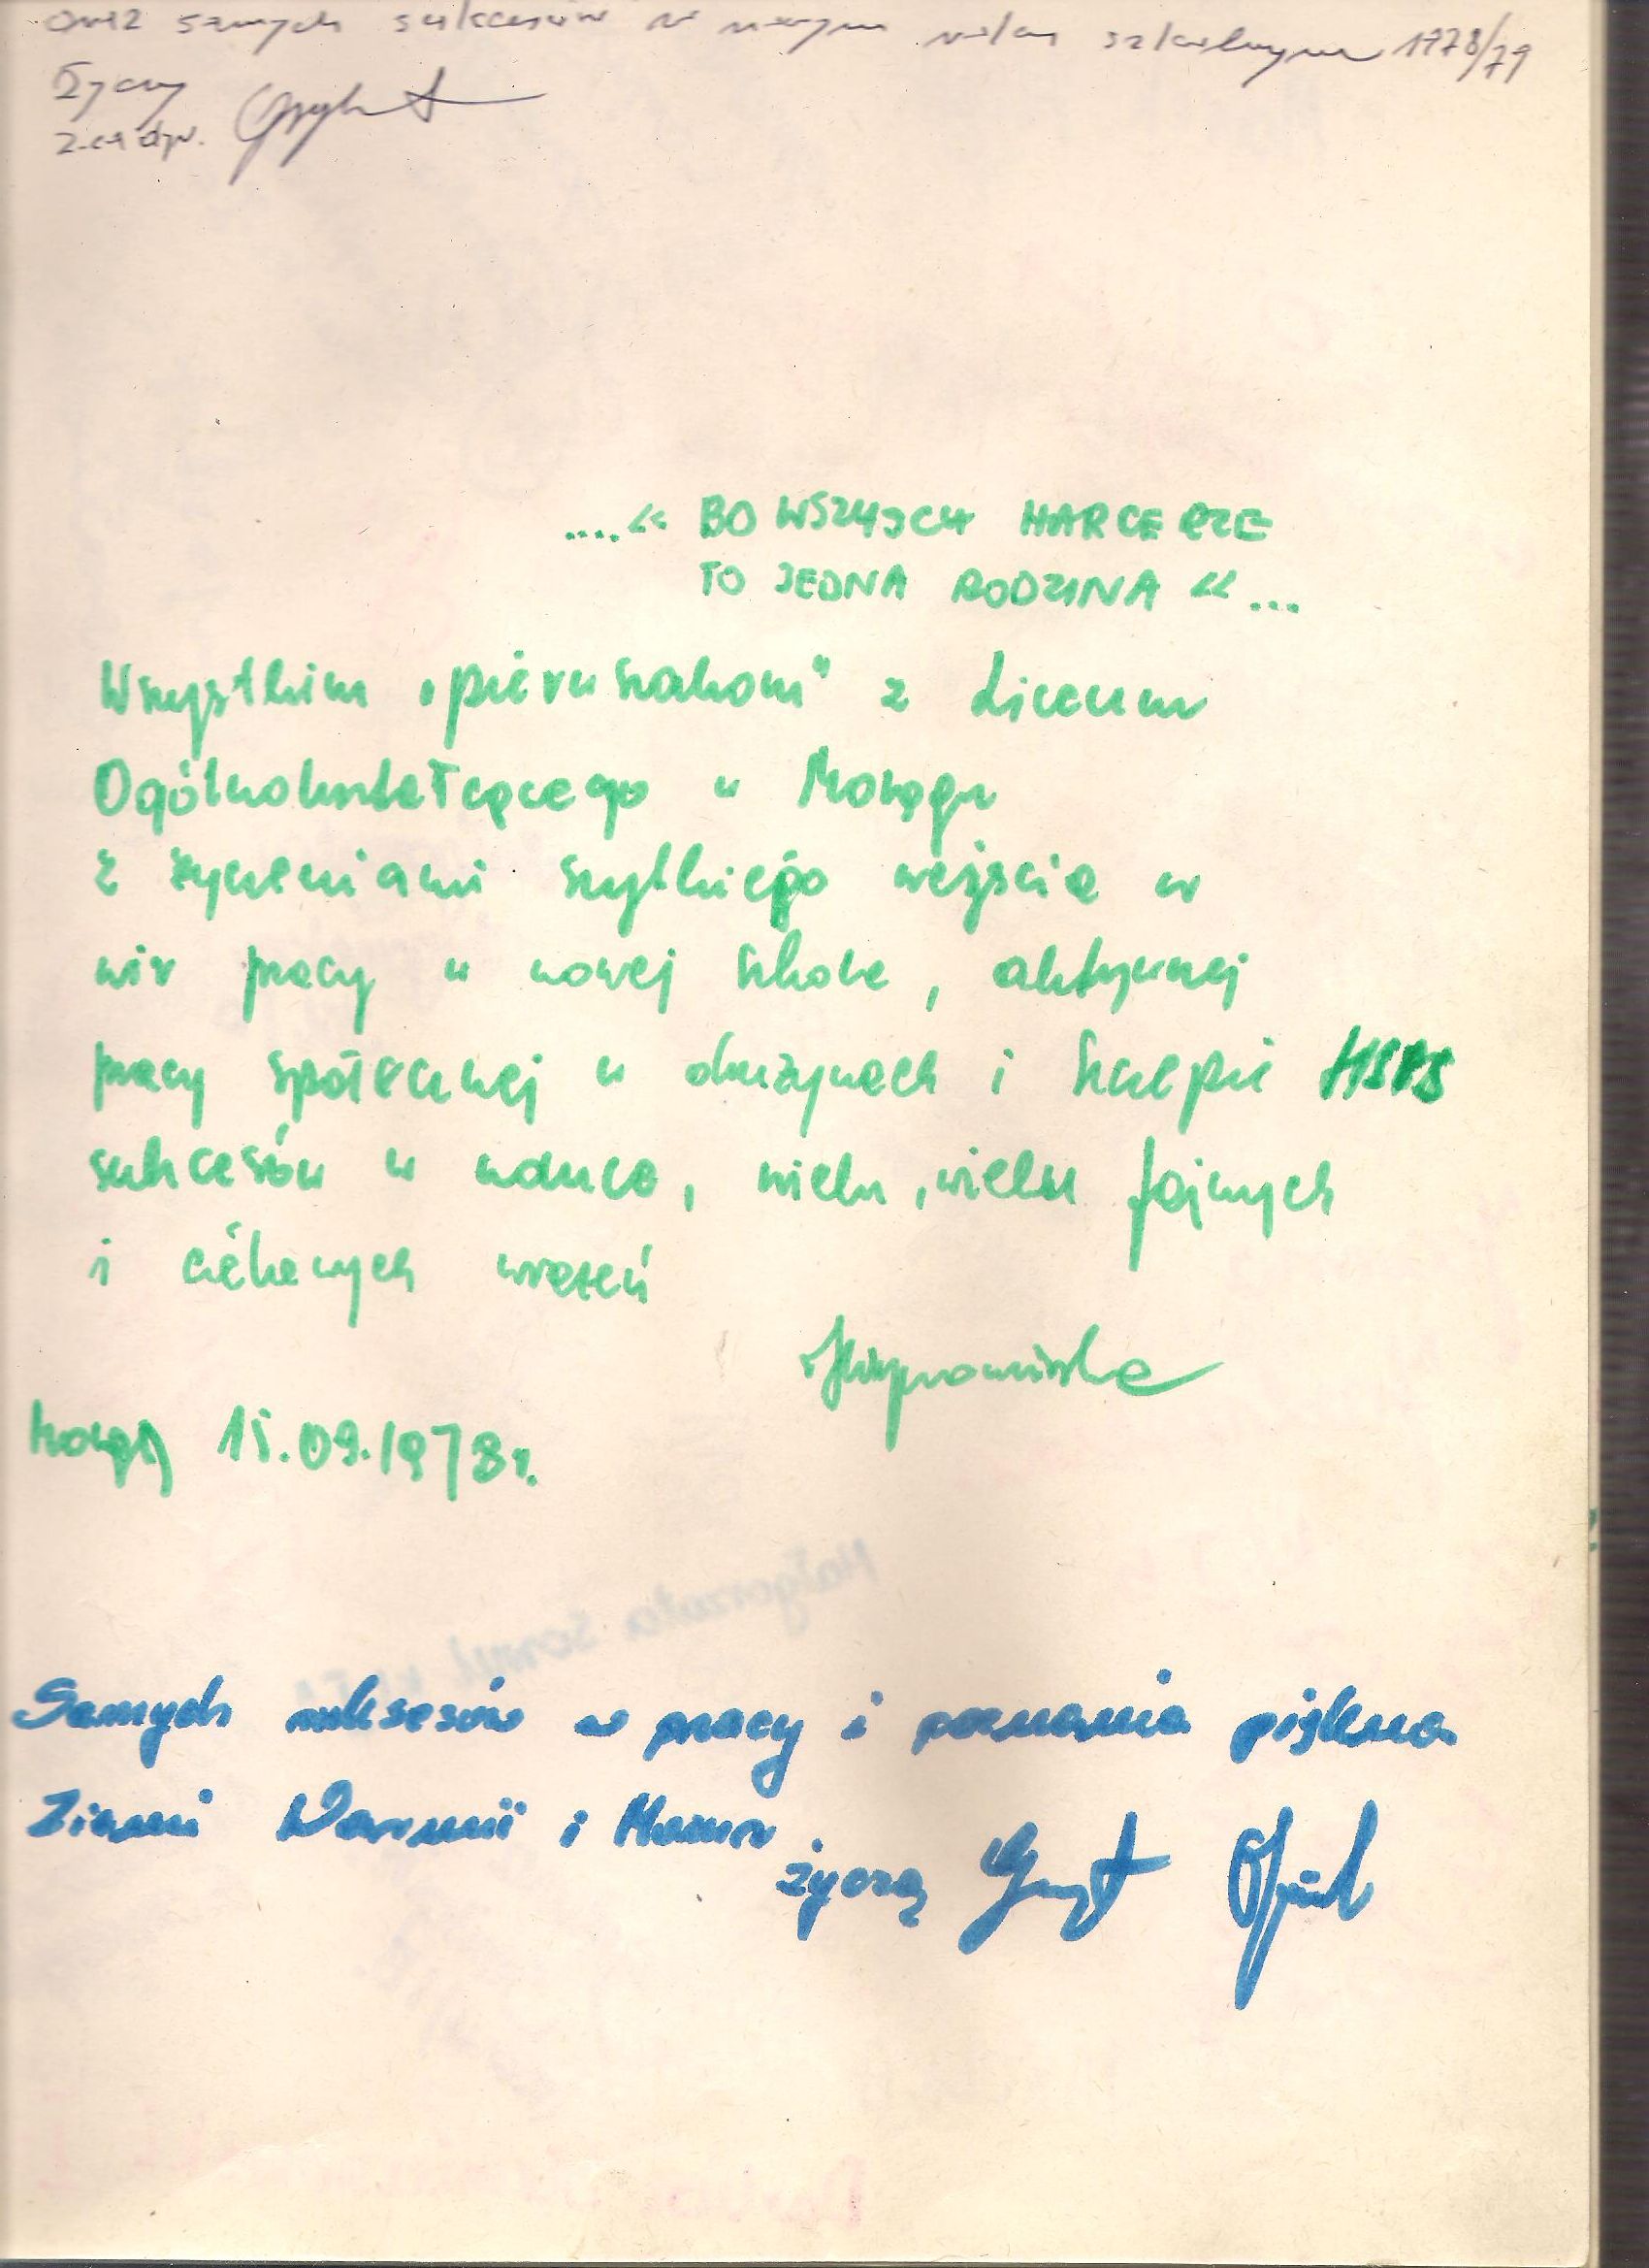 oraz samych sukcesów w nowym roku szkolnym 1978/79
Życzy
z-ca dyr.
....« BO WSZYSCY HARCERZE
TO JEDNA RODZINA «...
Wszystkim „pierwszakom" z Liceum
Ogólnokształcącego w Morągu
z życzeniami szybkiego wejścia w
wir pracy w nowej szkole, aktywnej
pracy społecznej w drużynach i Szczepie HSPS
sukcesów w nauce, wielu, wielu fajnych
i ciekawych wrażeń
Morąg 15.09.1978r.
Małgorzata
Samych sukcesów w pracy i poznania piękna
Ziemi Warmii i Mazur.
życzą